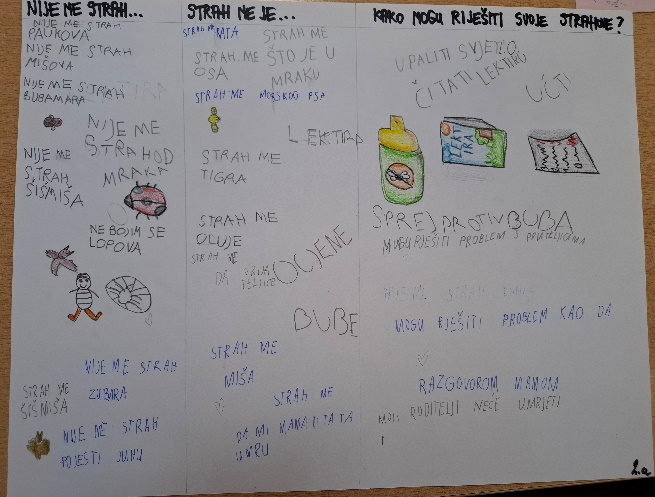 NIJE ME STRAH...
NIJE ME STRAH
PAUKOVA
NIJE ME STRAH
MIŠOVA
NIJE ME STRAH
BUBAMARA
NIJE ME
STRAH OD
MRAKA
NIJE ME
STRAH
ŠIŠMIŠA
NE BOJIM SE
LOPOVA
NIJE ME STRAH
ZUBARA
STRAH ME
ŠIŠMIŠA
NIJE ME STRAH
POJESTI JUHU
STRAH ME JE...
STRAH ME RATA
STRAH ME
ŠTO JE U
MRAKU
STRAH ME
OSA
STRAH ME MORSKOG PSA
LEKTIRA
STRAH ME
TIGRA
STRAH ME
OLUJE
STRAH ME
DA
OCJENE
BUBE
STRAH ME
MIŠA
STRAH ME
DA MI MAMA I TATA
UMRU
KAKO MOGU RIJEŠITI SVOJE STRAHOVE?
UPALITI SVJETLO
ČITATI LEKTIRU
UČITI
LEKT
IRA
SPREJ PROTIV BUBA
MOGU RIJEŠITI PROBLEM S PRIJATELJICAMA
MOGU RJEŠITI PROBLEM KAO DA
RAZGOVOROM MAMOM
MOJI RODITELJI NEĆE UMRJETI
2.a